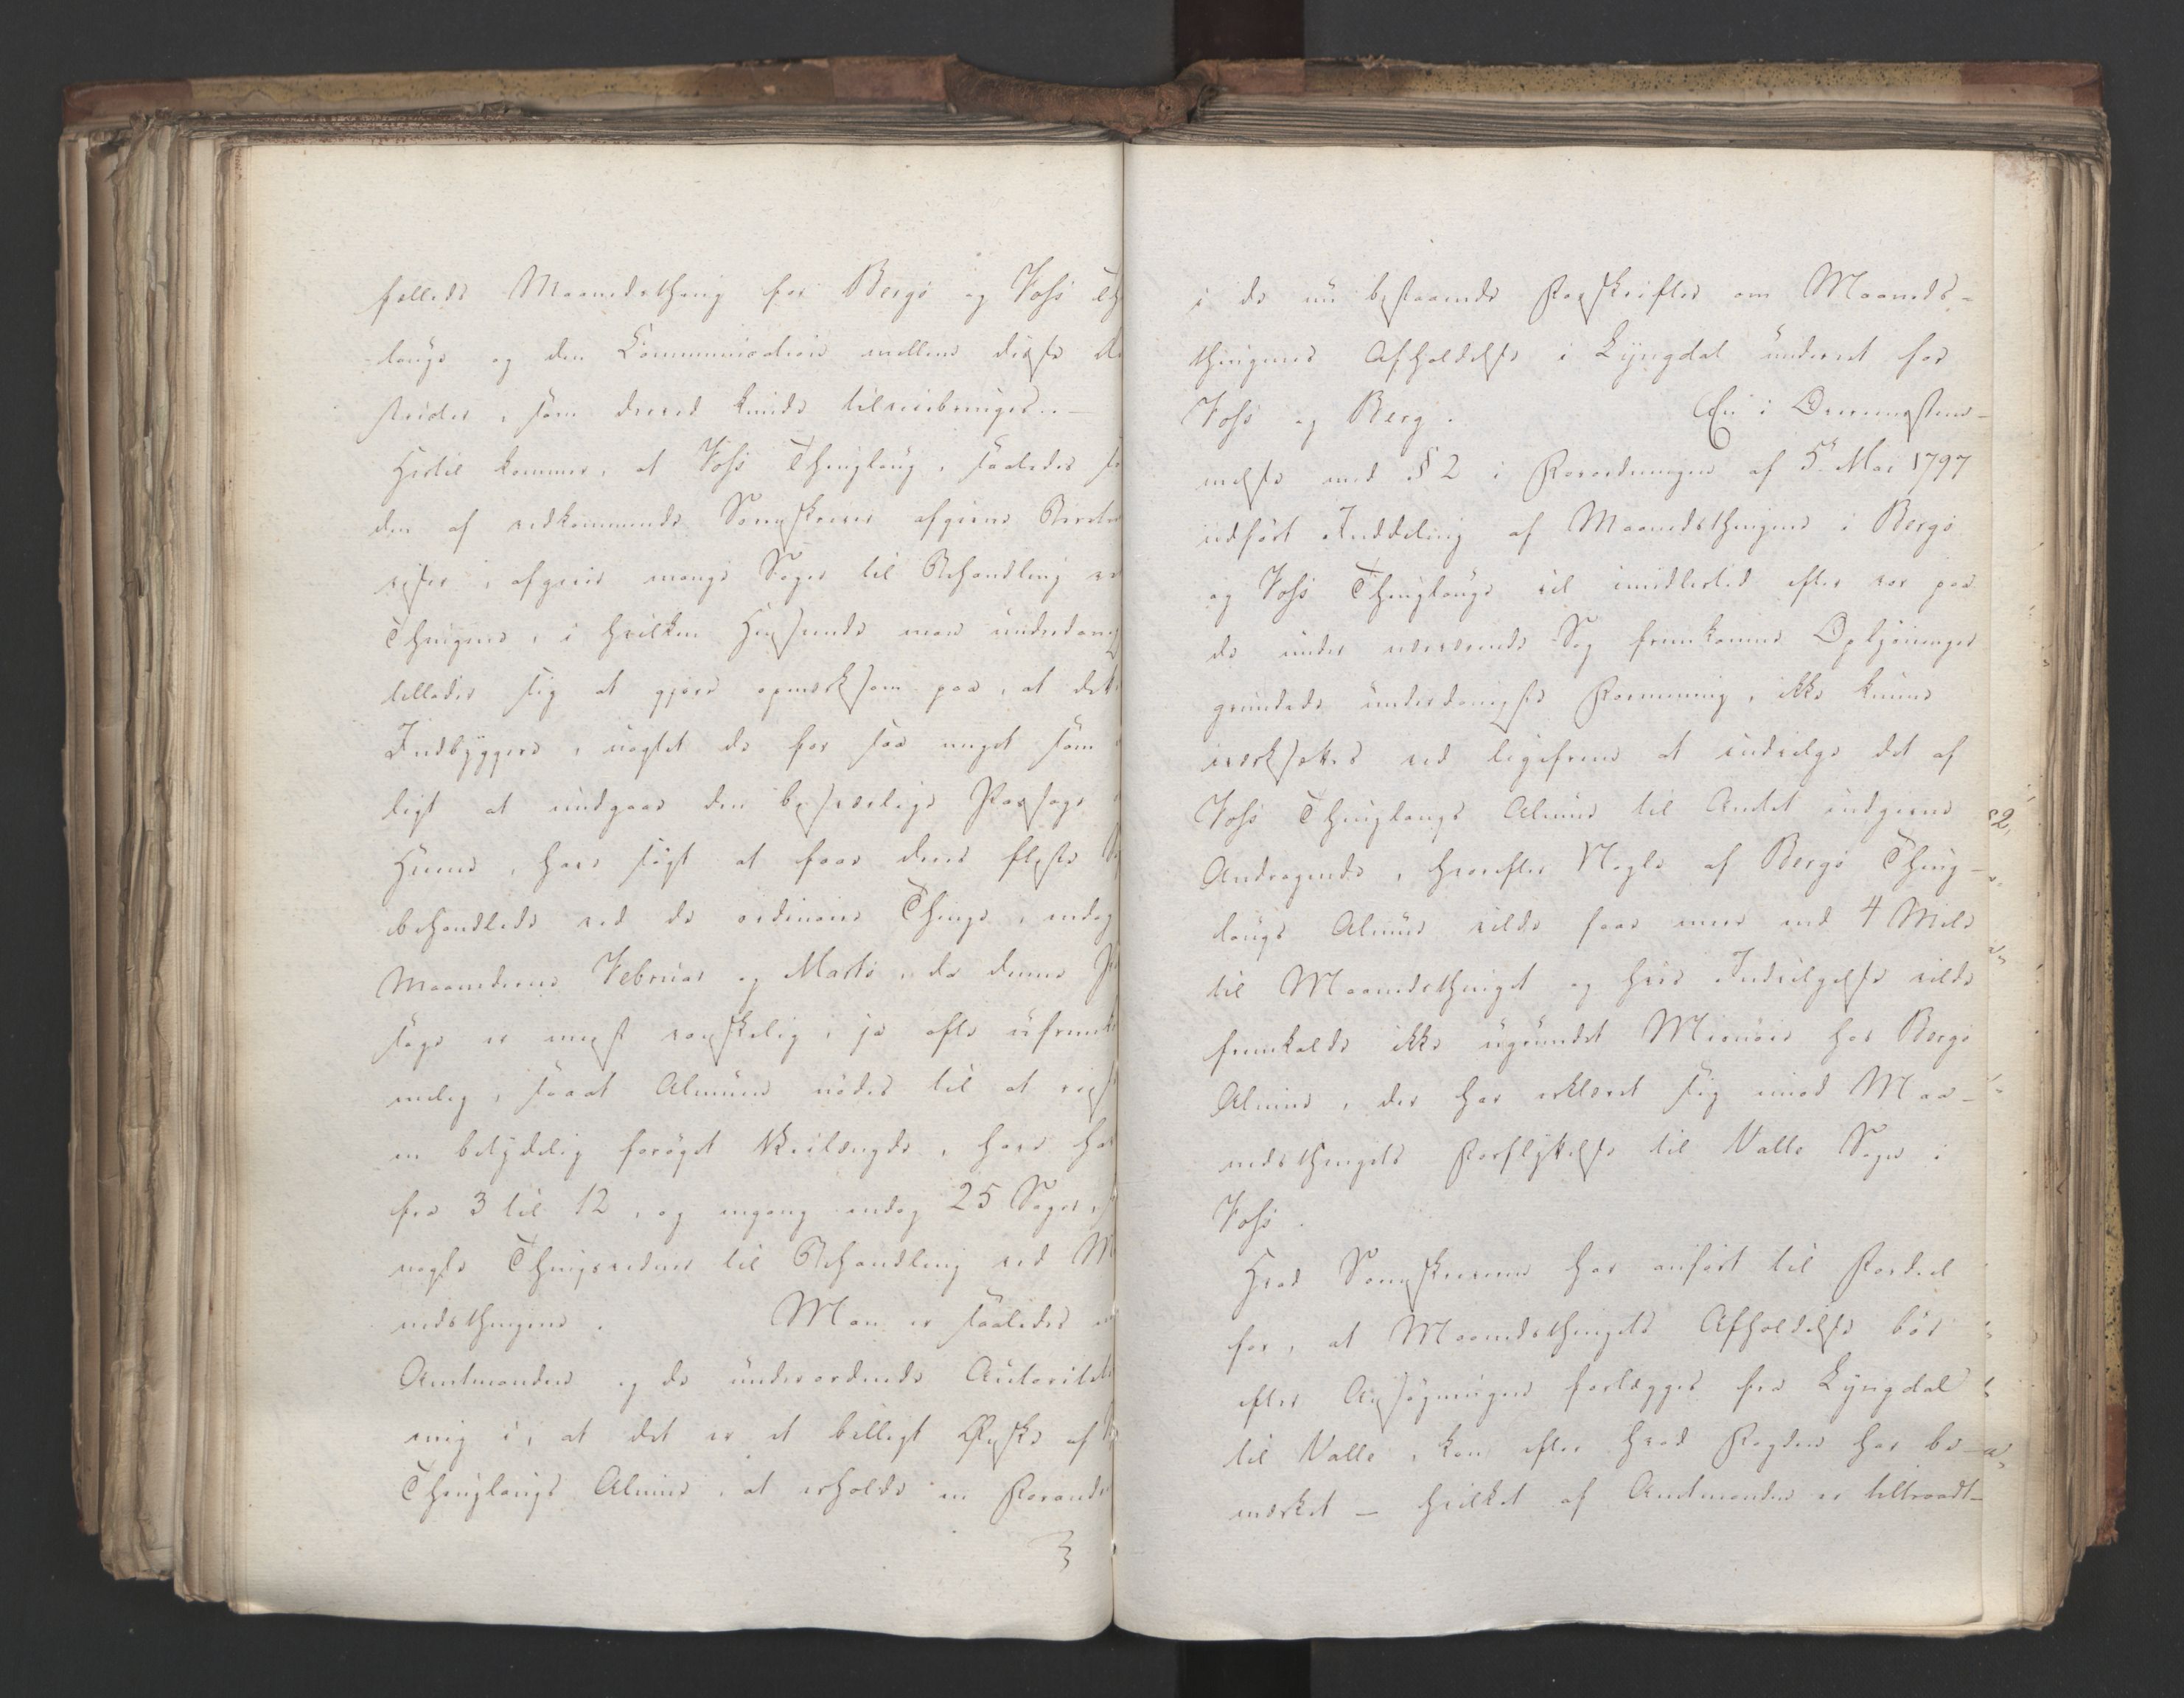 fælleds Maanedsthing for Bergs og Voss's Th
laugs og den Communication mellem disse Di
strikter, som derved kunde tilveiebringes. —
Hertil kommer, at Voss's Thinglaug, saaledes so
den af vedkommende Sorenskriver afgivne Beret
viser, afgiver mange Sager til Behandling ve
Thingene, i hvilken Henseende man underdanig
tillader sig at gjøre opmærksom paa, at det
Indbyggere, uagtet de for saa meget som
ligt at undgaae den besværlige Reise
Hiem, have søgt at faae deres fleste S
behandlede ved de ordinaire Thinge, endog
Maanederne Februar og Marts, da denne
er meest vanskelig, ja ofte ufremk
melig, saaat Almuen nødes til at reise
en betydelig forøget Veilængde, have ha
fra 3 til 12, og engang endog 25 Sager,
nogle Thingsvidner til Behandling ved M
nedsthingene. Man er saaledes
Amtmanden og de underordnede Autoritete
enig i, at det er et billigt Ønske af
Thinglaugs Almue, at erholde en Forandr
i de nu bestaaende Forskrifter om Maaneds-
thingenes Afholdelse i Lyngdal underet for
Voss og Berg. En i Overeensstem-
melse med § 2 i Forordningen af 5 Mai 1797
udført Inddeling af Maanedsthingene i Bergs
og Voss's Thinglaugs vil imidlertid efter vor paa
de under nærværende Sag fremkomne Oplysninger
grundede underdanigste Formening, ikke kunne
iværksættes ved ligefrem at indvilge det af
Voss's Thinglaugs Almue til Amtet indgivne
Andragende, hvorefter Nogle af Bergs Thing-
laugs Almue vilde faae meer end 4 Mile
til Maanedsthinget og hvis Indvilgelse vilde
fremkalde ikke ugrundet Misnøie hos Bergs
Almue, der har erklæret sig imod Maa-
nedsthingets Forflyttelse til Valle Sogn i
Voss.
Hvad Sorenskriveren har anført til Fordeel
for, at Maanedsthingets Afholdelse bør
efter Ansøgningen forlægges fra Lyngdal
til Valle, kan efter hvad Fogden har be-
mærket — hvilket af Amtmanden er tiltraadt —